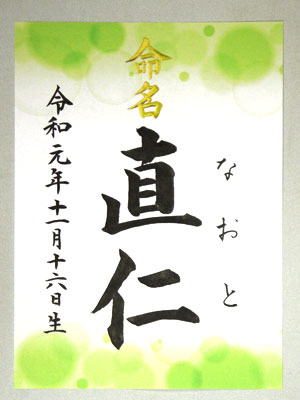 命名
なおと
直仁
令和元年十一月十六日生